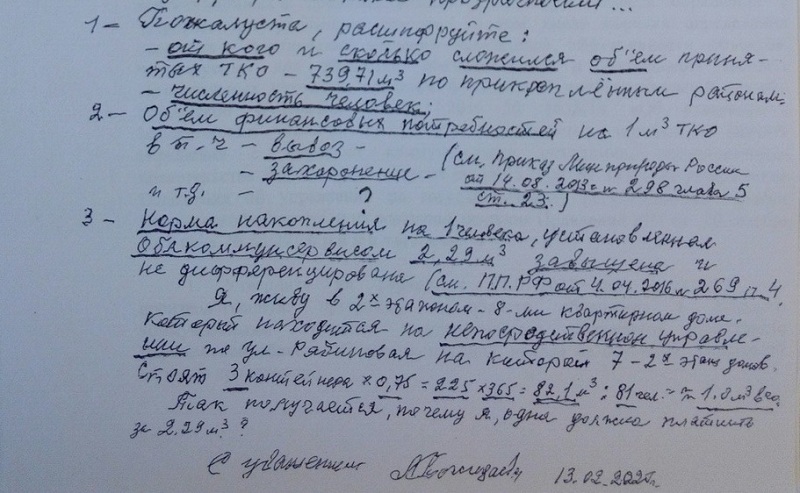 1 – Пожалуста, расшифруйте:
– от кого и сколько сложился объём приня-
тых ТКО – 739,71 м³ по прикреплённым районам;
– численность человек;
2 – Объём финансовых потребностей на 1 м³ ТКО
в т.ч – вывоз –
– захоронение – (см. приказ Минприроды России
от 14.08.2013г № 298 глава 5
и т.д. – ? ст. 23.)
3 – Норма накопления на 1 человека, установленная
2,29 м³ завышена и
не дифференцирована (см. П.П.РФ от 4.04.2016 № 269 п. 4
Я, живу в 2х этажном – 8-ми квартирном доме,
который находится на непосредственном управле-
нии по ул. Рябиновая на которой 7 – 2х этаж домов.
Стоят 3 контейнера × 0,75 = 225 × 365 = 82,1 м³ : 81 чел. = 1.0 м³ в го.
Так получается, почему я, одна должна платить
за 2.29 м³?
С уважением 13.02.2025г.